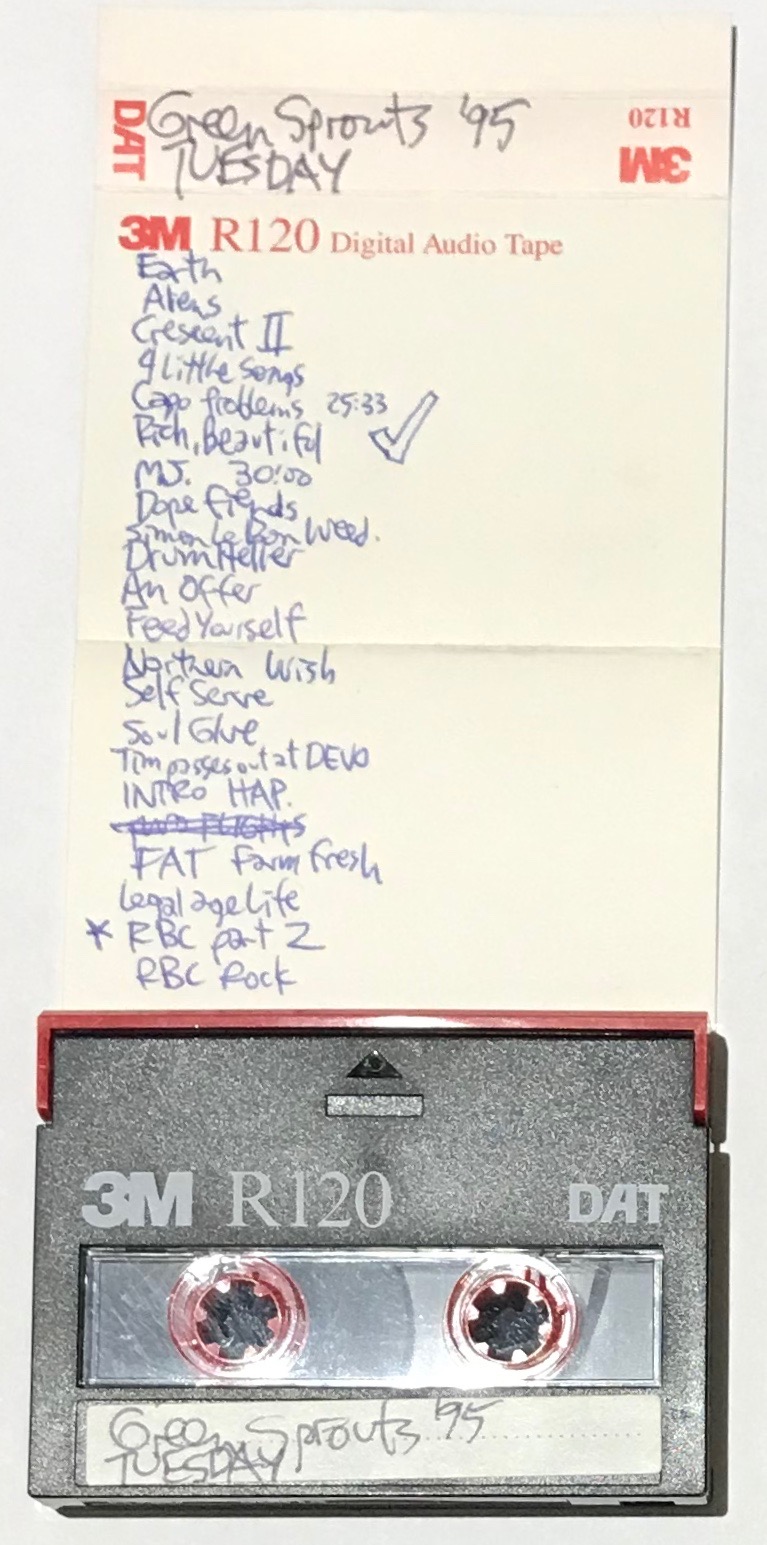 DAT Green Sprouts '95 R120
TUESDAY 3M
3M R120 Digital Audio Tape
Earth
Aliens
Crescent II
9 Little Songs
Capo problems 25:33
Rich, Beautiful
MJ. 30:00
Dope fiends
Simon Le Bon Weed.
Drumheller
An Offer
Feed Yourself
Northern Wish
Self Serve
Soul Glue
Tim passes out at DEVO
INTRO HAP.
FAT farm fresh
Legal age Life
* RBC part 2
RBC Rock
3M R120 DAT
Green Sprouts '95
TUESDAY